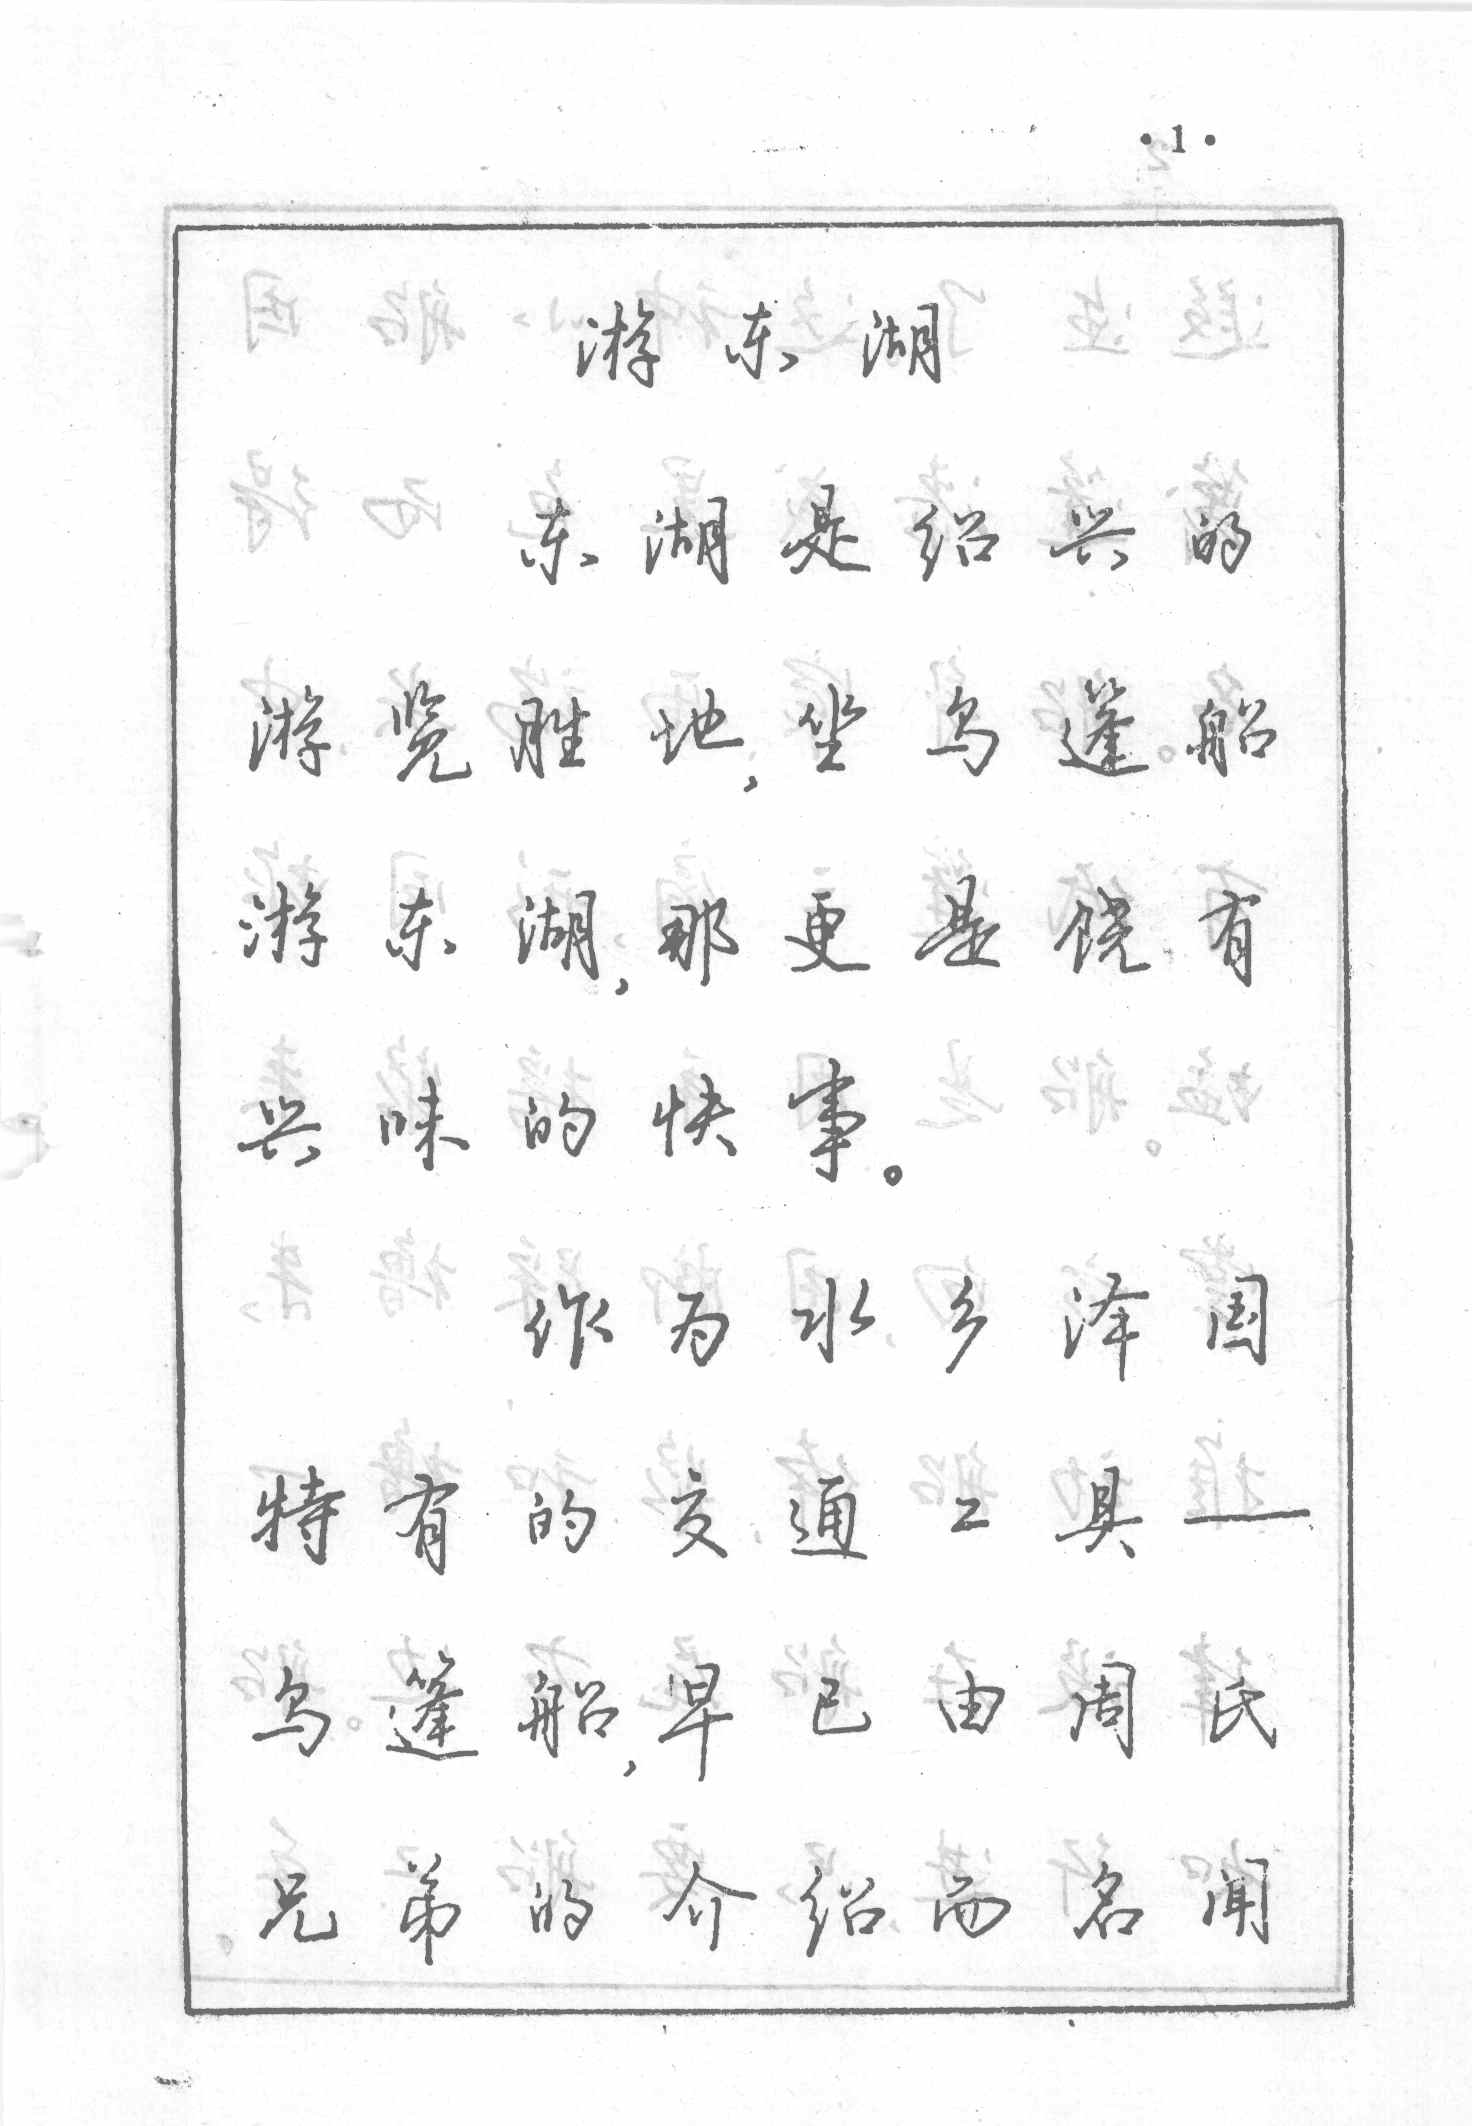 ·1·
游东湖
东湖是绍兴的
游览胜地,坐乌篷船
游东湖,那更是饶有
兴味的快事。
作为水乡泽国
特有的交通工具—
乌篷船,早已由周氏
兄弟的介绍而名闻